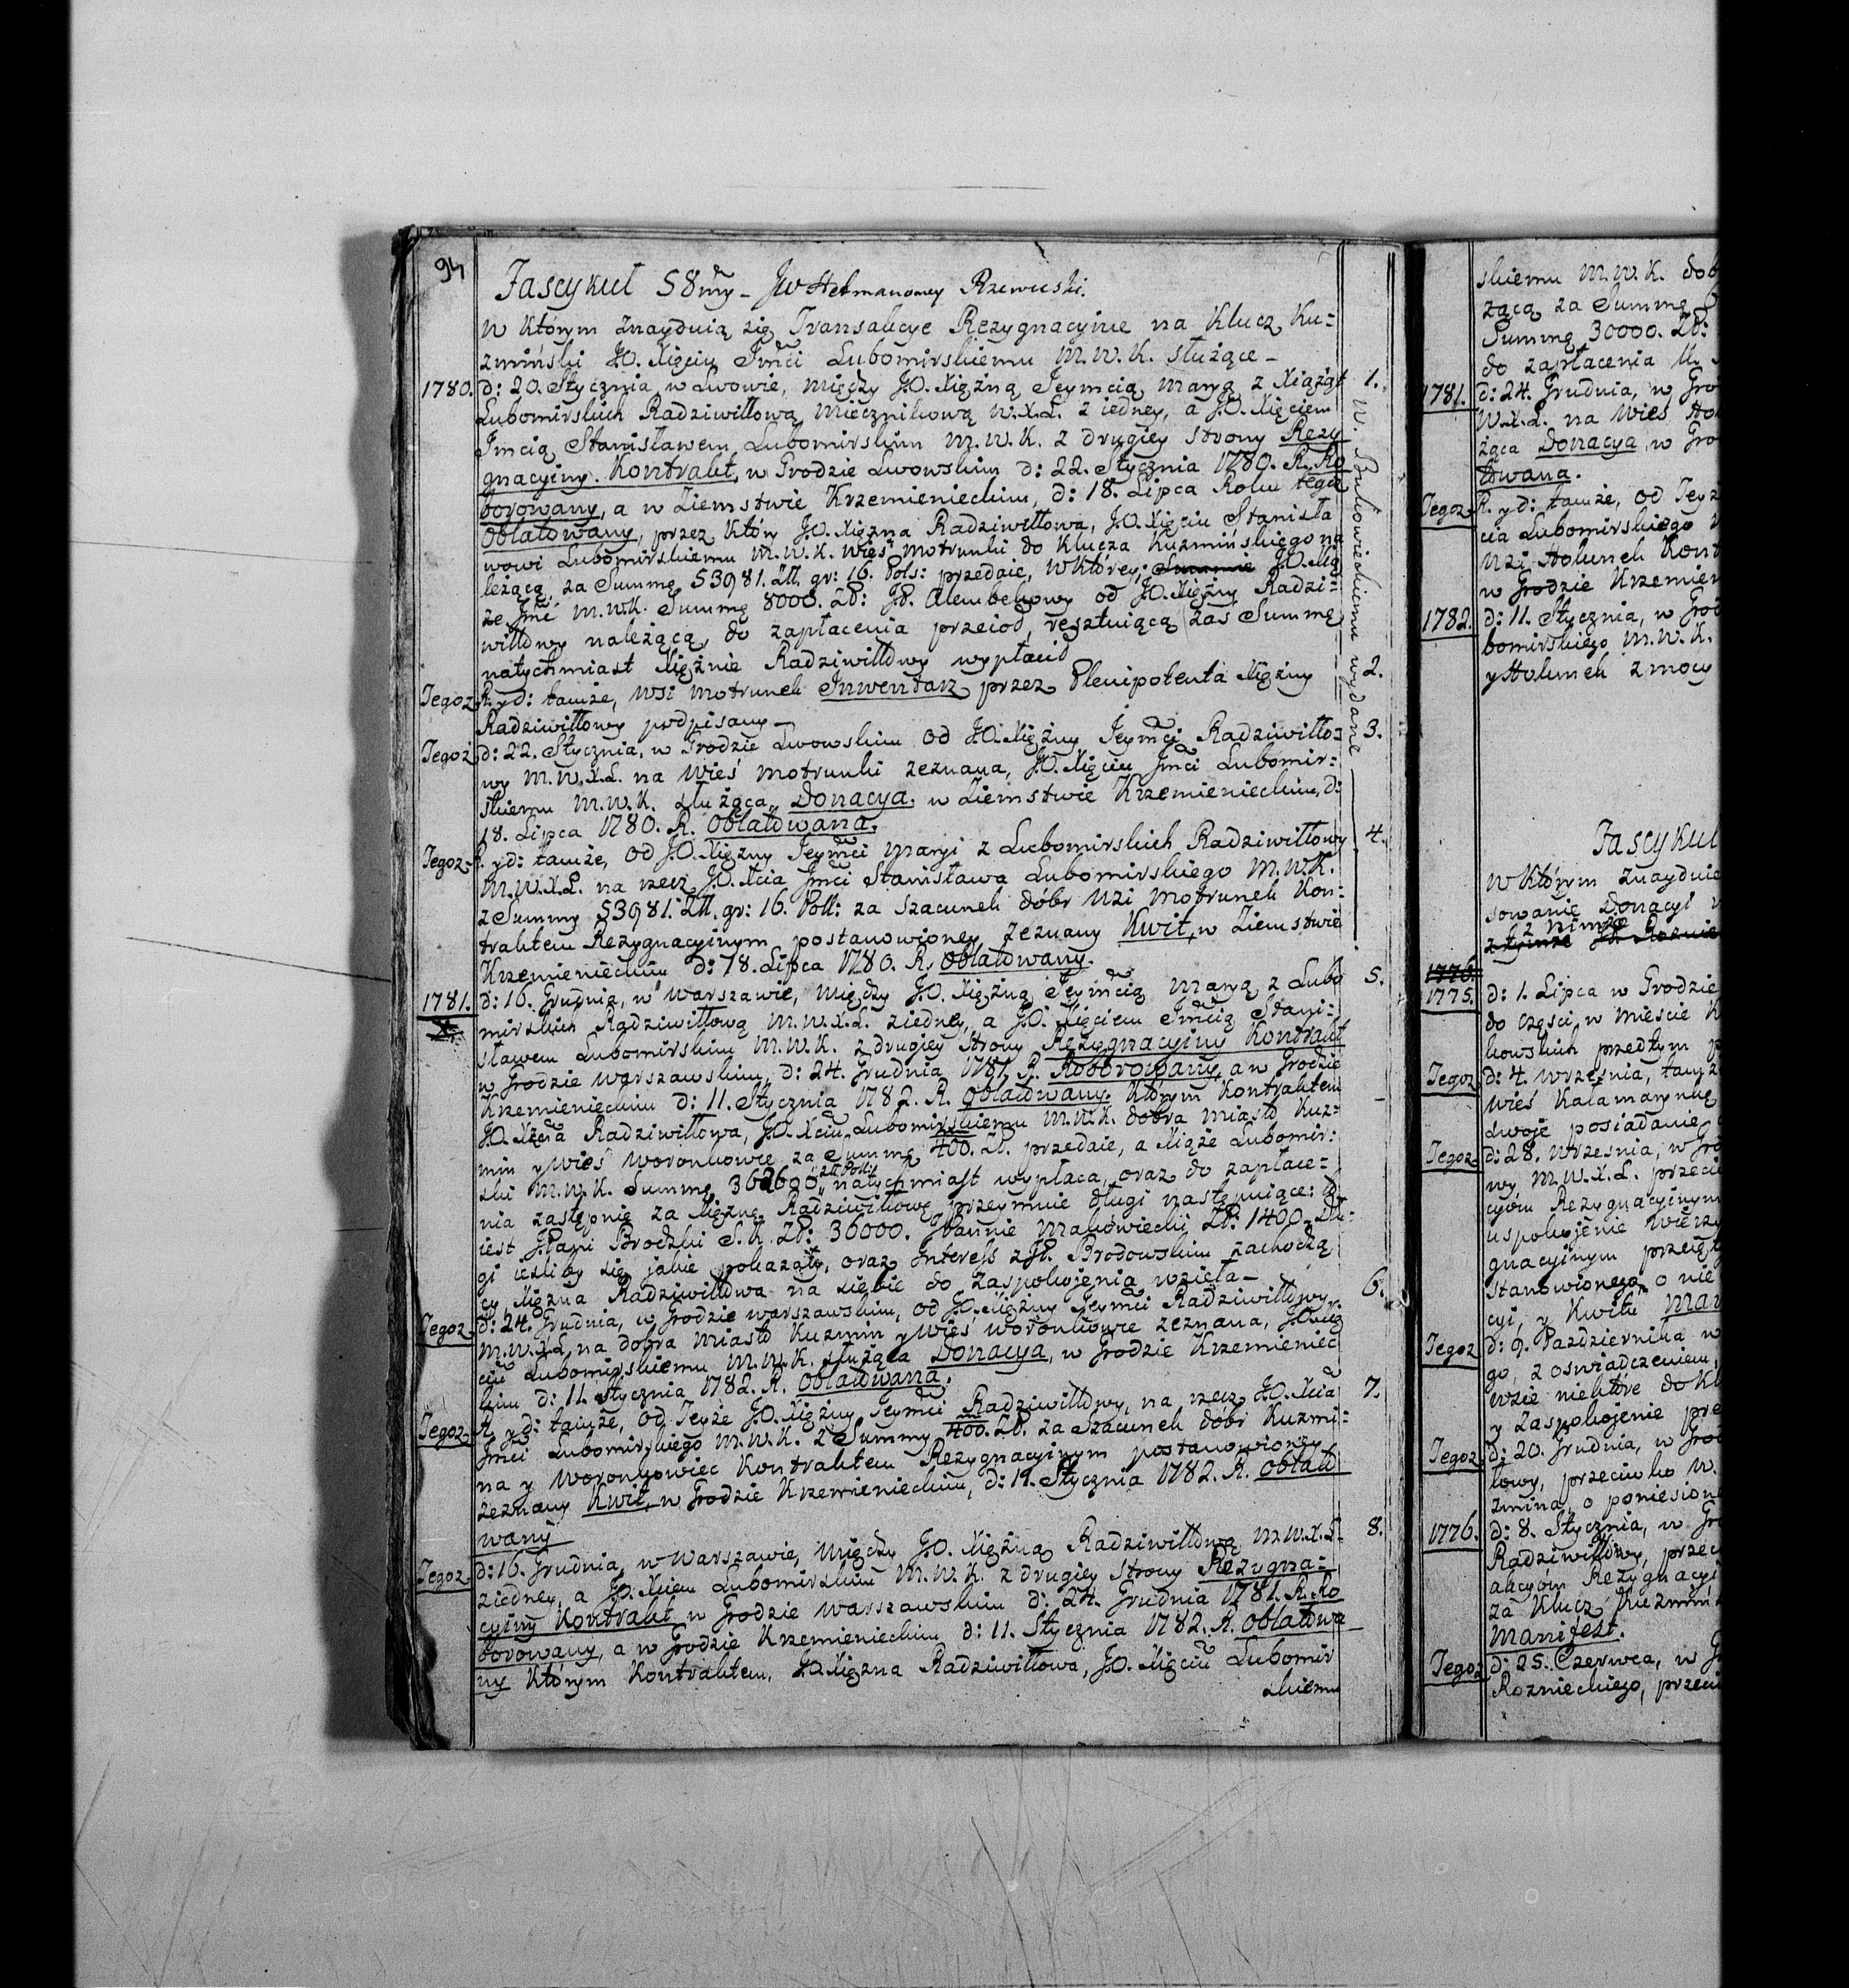 94
Fascykuł 58my – JW Hetmanowey Rzewuski.
w którym znayduią się Transakcye Rezygnacyine na Klucz Ku:
zmiński J.O. Xięciu Jmci Lubomirskiemu M.W.K. służące –
1780. d: 20. Stycznia, w Lwowie, między J.O. Xiężną Jeymcią Maryą z Xiążąt 1.
Lubomirskich Radziwiłłową Miecznikową W.X.L. z iedney, a J.O. Xięciem
Jmcią Stanisławem Lubomirskim M.W.K. z drugiey strony Rezy
gnacyiny Kontrakt, w Grodzie Lwowskim d: 22. Stycznia 1780. R. Ro
borowany, a w Ziemstwie Krzemienieckim, d: 18. Lipca Roku tegoż
Oblatowany, przez który J.O. Xiężna Radziwiłłowa, J.O. Xięciu Stanisła
wowi Lubomirskiemu M.W.K. wieś Motrunki do Klucza Kuzmińskiego na
leżącą, za Summę 53981. Złł. gr: 16. Pols: przedaie, w którey, Summie J.O. Xią
że Jmć M.W.K. Summę 8000. Zł: JP. Alembekowy od J.O. Xiężny Radzi:
wiłłowy należącą, do zapłacenia przeioł, resztuiącą zaś Summę
natychmiast Xiężnie Radziwiłłowy wypłacił
Tegoż R. y d: tamże, wsi Motrunek Inwentarz przez Plenipotenta Xiężny 2.
Radziwiłłowy podpisany –
Tegoż d: 22. Stycznia, w Grodzie Lwowskim od J.O. Xiężny Jeymci Radziwiłło: 3.
wy M.W.X.L. na wieś Motrunki zeznana, J.O. Xięciu Jmci Lubomir:
skiemu M.W.K. służąca, Donacya, w Ziemstwie Krzemienieckim, d:
18. Lipca 1780. R. Oblatowana.
Tegoż R. y d: tamże, od J.O. Xiężny Jeymci Maryi z Lubomirskich Radziwiłłowy 4.
M.W.X.L. na rzecz J.O. Xcia Jmci Stanisława Lubomirskiego M.W.K.
z Summy 53981. Złł. gr: 16. Poll: za Szacunek dóbr Wsi Motrunek Kon:
traktem Rezygnacyinym postanowioney zeznany Kwit, w Ziemstwie
Krzemienieckim d: 18. Lipca 1780. R. Oblatowany.
1781. d: 16. Grudnia, w Warszawie, między J.O. Xiężną Jeymcią Maryą z Lubo 5.
mirskich Radziwiłłową M.W.X.L. z iedney, a J.O. Xięciem Jmcią Stani:
sławem Lubomirskim M.W.K. z drugiey strony Rezygnacyiny Kontrakt
w Grodzie Warszawskim, d: 24. Grudnia 1781. R. Roborowany, a w Grodzie
Krzemienieckim d: 11. Stycznia 1782. R. Oblatowany. Którym Kontraktem
J.O. Xżna Radziwiłłowa, J.O. Xciu Lubomirskiemu M.W.K. dobra miasto Kuz:
min y wieś Woronkowce za Summę 400. Zł. przedaie, a Xiąże Lubomir:
ski M.W.K. Summę 362600 Zll Poll: natychmiast wypłaca, oraz do zapłace:
nia zastępnie za Xiężnę Radziwiłłowę przeymuie długi następuiące: to
iest JPani Brodzki S.K. Zł: 36000. JPannie Makowiecki Zł: 1400. Dłu:
gi ieśliby się jakie pokazały, oraz Interess z JP. Brodowskim zachodzą
cy, Xiężna Radziwiłłowa na siebie do zaspokojenia wzięła –
Tegoż d: 24. Grudnia, w Grodzie Warszawskim, od J.O. Xiężny Jeymci Radziwiłłowy 6.
M.W.X.L. na dobra Miasto Kuzmin y wieś Woronkowce zeznana, J.O. Xię
ciu Lubomirskiemu M.W.K. służąca Donacya, w Grodzie Krzemieniec
kim d: 11. Stycznia 1782. R. Oblatowana.
Tegoż R. y d: tamże, od Teyże J.O. Xiężny Jeymci Radziwiłłowy, na rzecz J.O. Xcia 7.
Jmci Lubomirskiego M.W.K. z Summy 400. Zł. za Szacunek dobr Kuzmi:
na y Woronkowiec Kontraktem Rezygnacyinym postanowioney
zeznany Kwit, w Grodzie Krzemienieckim, d: 11. Stycznia 1782. R. Oblato
wany
Tegoż d: 16. Grudnia, w Warszawie, między J.O. Xiężną Radziwiłłową M.W.X.L. 8.
z iedney, a J.O. Xciem Lubomirskim M.W.K. z drugiey strony Rezygna:
cyiny Kontrakt w Grodzie Warszawskim d: 24. Grudnia 1781. R. Ro
borowany, a w Grodzie Krzemienieckim d: 11. Stycznia 1782. R. Oblatowa
ny Którym Kontraktem, J.O. Xiężna Radziwiłłowa, J.O. Xięciu Lubomir
skiemu
W. Bukowieckiemu wydane
skiemu M.W.K. dob
żącą za Summę
Summę 30000. Zł:
do zapłacenia
1781. d: 24. Grudnia, w Gro
W.X.L. na Wieś Hol
żąca Donacya, w Gro
towana.
Tegoż R. y d: tamże, od Jey
cia Lubomirskiego
Wsi Holunek Kont
w Grodzie Krzemien
1782. d: 11. Stycznia, w Grod
bomirskiego M.W.K.
y Holunek z mocy
Fascykuł
w którym znayduią
sowanie Donacyi
z nimże
1776.
1775. d: 1. Lipca w Grodzie
do częsci w mieście K
kowskich przedtym
Tegoż d: 4. Września, tamż
wieś Kałamarynkę
swoje posiadanie
Tegoż d: 28. Września, w Gro
wy M.W.X.L. przeciw
cyiów Rezygnacyinym
uspokojenie wierzy
gnacyinym przeią
stanowionego, o nie
cyi, y Kwitu Man
Tegoż d: 9. Pazdziernika w
go, z oswiadczeniem,
wzie niektóre do Kl
y zaspokojenie prze
Tegoż d: 20. Grudnia, w Grod
łowy, przeciwko W.
zmina, o poniesion
1776. d: 8. Stycznia, w Gro
Radziwiłłowy, przec
akcyów Rezygnacyi
za Klucz Kuzmińs
Manifest.
Tegoż d: 25. Czerwca, w G
Roznieckiego, przeci